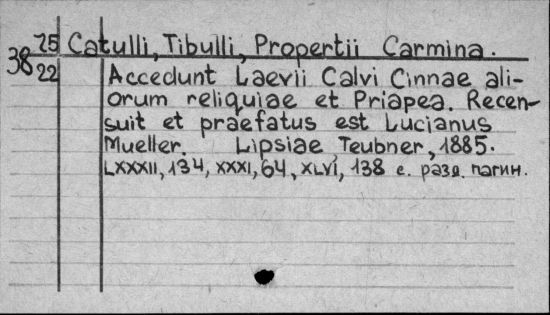 38 25 Catulli, Tibulli, Propertii Carmina.
22 Accedunt Laevii Calvi Cinnae ali-
orum reliquiae et Priapea. Recen-
suit et praefatus est Lucianus
Mueller. Lipsiae Teubner, 1885.
LXXXII, 134, XXXI, 64, XLVI, 138 с. разд. пагин.